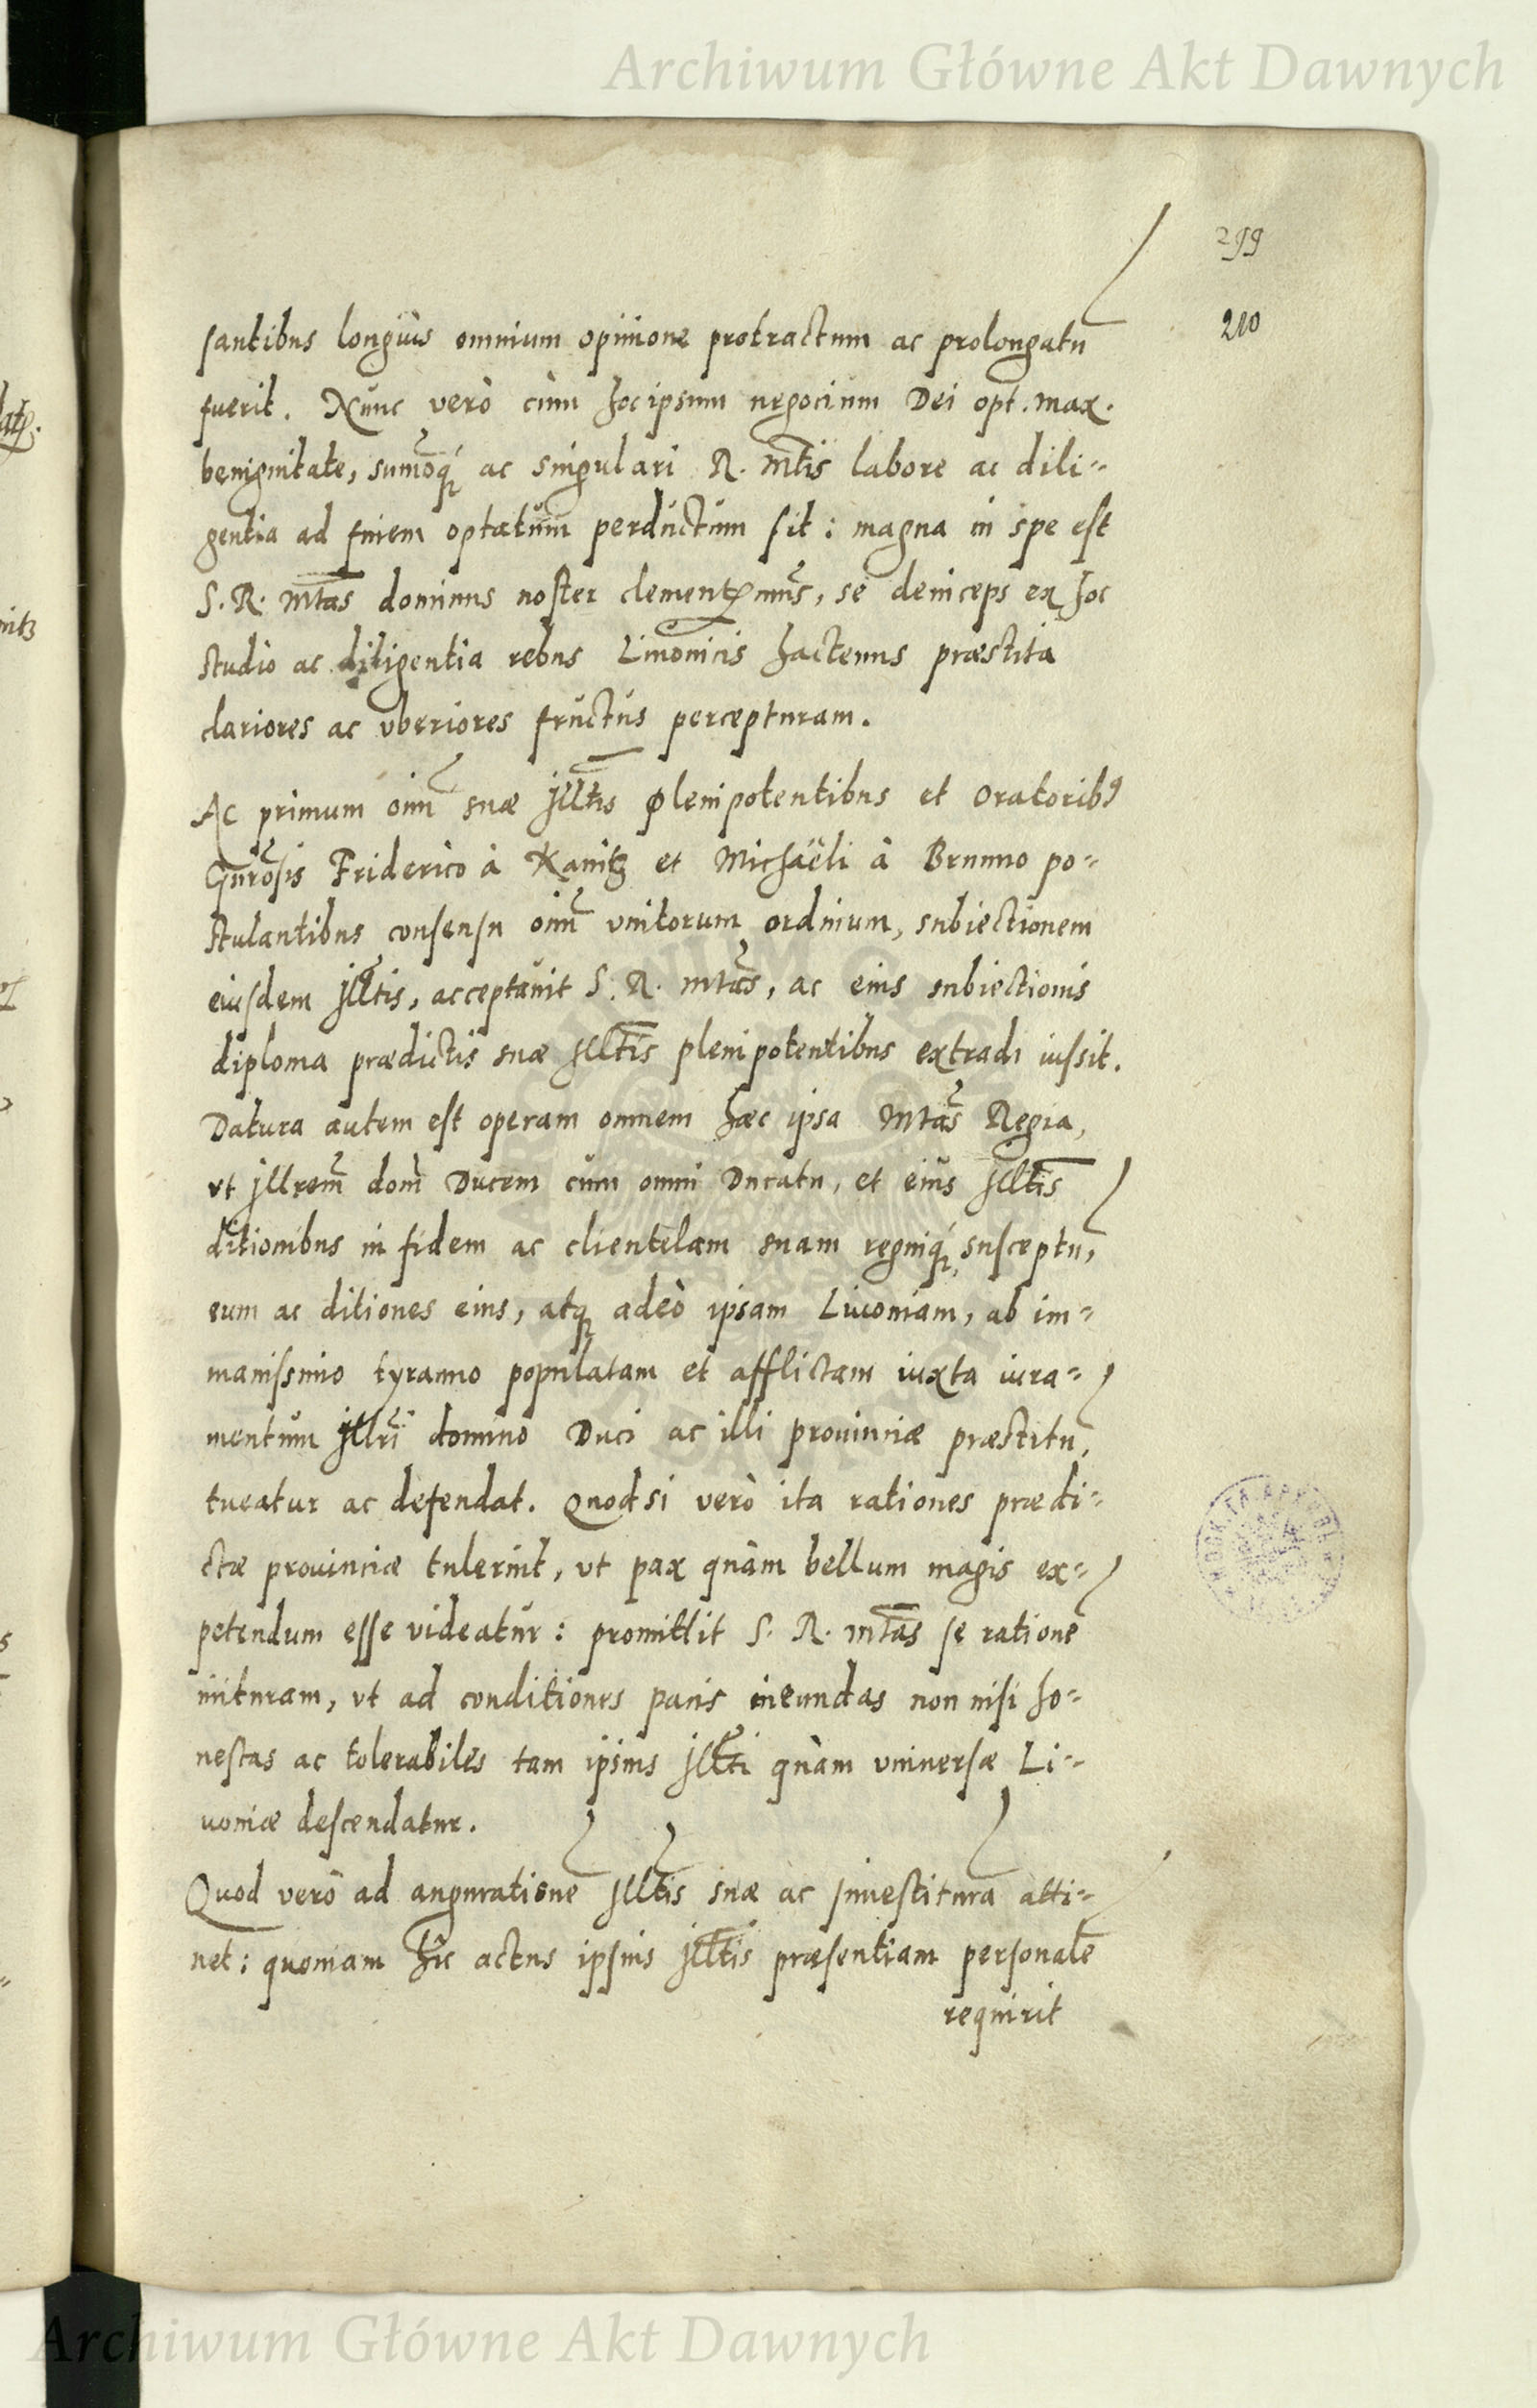 Archiwum Główne Akt Dawnych
299
210
santibus longius omnium opinione protractum ac prolongatū
fuerit. Nunc verò cùm hoc ipsum negocium Dei opt. max.
benignitate, sum̄oq́ ac singulari R. Mtis labore ac dili-
gentia ad finem optatum perductum sit: magna in spe est
S. R. Mtas dominus noster clementmus, se deinceps ex hoc
studio ac diligentia rebus Liuonicis hactenus præstita
clariores ac vberiores fructus percepturam.
Ac primum oim̄ suæ Jlltis plenipotentibus et Oratorib9
Gn̄rosis Friderico à Kanitz et Michaëli à Brunno po-
stulantibus consensu oim̄ vnitorum ordinum, subiectionem
eiusdem Jlltis, acceptauit S. R. Mtas, ac eius subiectionis
diploma prædictis suæ Jlltis plenipotentibus extradi iussit.
Datura autem est operam omnem hæc ipsa Mtas Regia,
vt Jllrem̄ dom̄ Ducem cum omni Ducatu, et eius Jlltis
ditionibus in fidem ac clientelam suam regniq́ susceptū,
eum ac ditiones eius, atq adeò ipsam Liuoniam, ab im-
manissimo tyranno populatam et afflictam iuxta iura-
mentum Jllri domino Duci ac illi prouinciæ præstitū,
tueatur ac defendat. Quodsi verò ita rationes prædi-
ctæ prouinciæ tulerint, vt pax quàm bellum magis ex-
petendum esse videatur: promittit S. R. Mtas se rationē
inituram, vt ad conditiones pacis ineundas non nisi ho-
nestas ac tolerabiles tam ipsius Jllti quàm vniuersæ Li-
uoniæ descendatur.
Quod verò ad anguratione Jlltis suæ ac Inuestitura atti-
net: quoniam hic actus ipsius Jlltis præsentiam personalē
requirit
Archiwum Główne Akt Dawnych